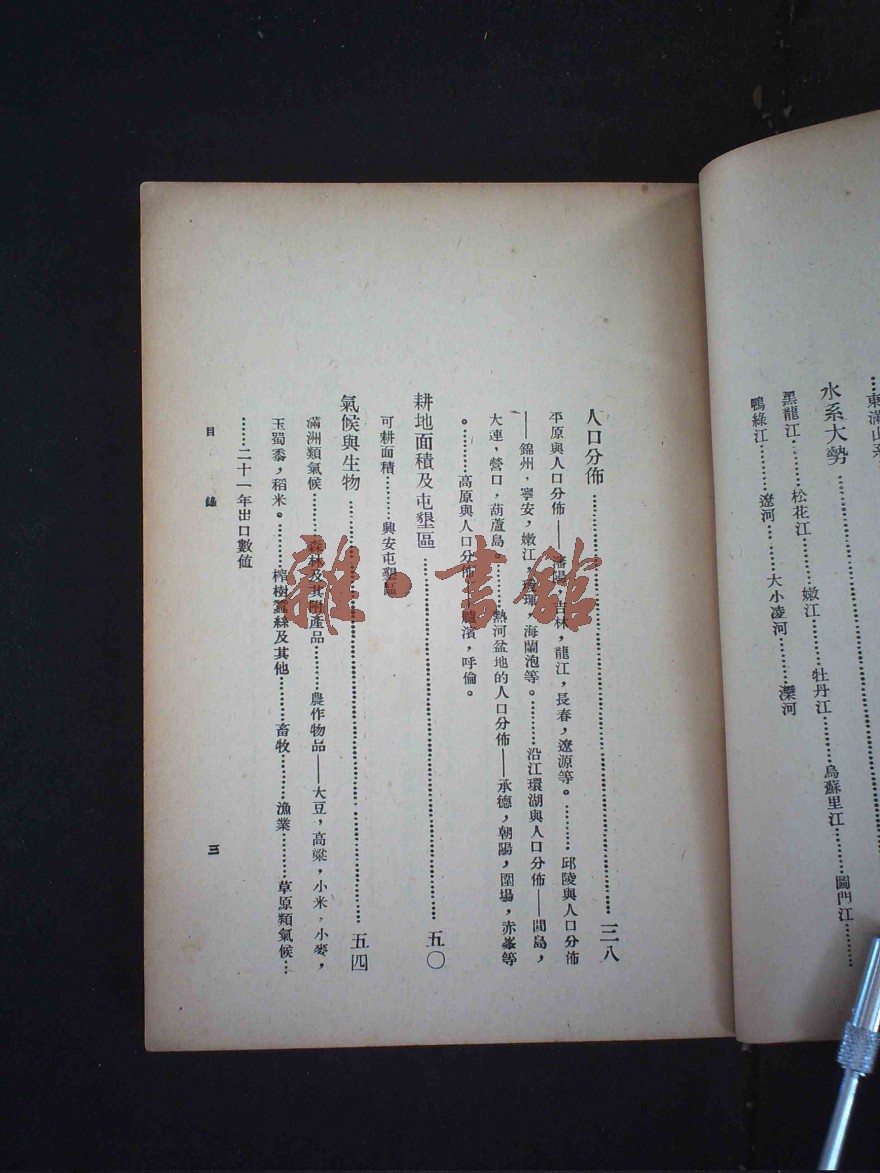 …東滿山系
水系大勢………
黑龍江………松花江………嫩江………牡丹江………烏蘇里江………圖門江………
鴨綠江………遼河………大小凌河………灤河
人口分佈………三八
平原與人口分佈——瀋陽,吉林,龍江,長春,遼源等。………邱陵與人口分佈
——錦州,寧安,嫩江,璦琿,海蘭泡等。………沿江環湖與人口分佈——間島,
大連,營口,葫蘆島。………熱河盆地的人口分佈——承德,朝陽,圍場,赤峯等
。………高原與人口分佈——臚濱,呼倫。
耕地面積及屯墾區………五〇
可耕面積………興安屯墾區
氣候與生物………五四
滿洲類氣候………森林及其附產品………農作物品——大豆,高粱,小米,小麥,
玉蜀黍,稻米。………榨樹蠶絲及其他………畜牧………漁業………草原類氣候…
……二十一年出口數值
目錄
三
雜·書館